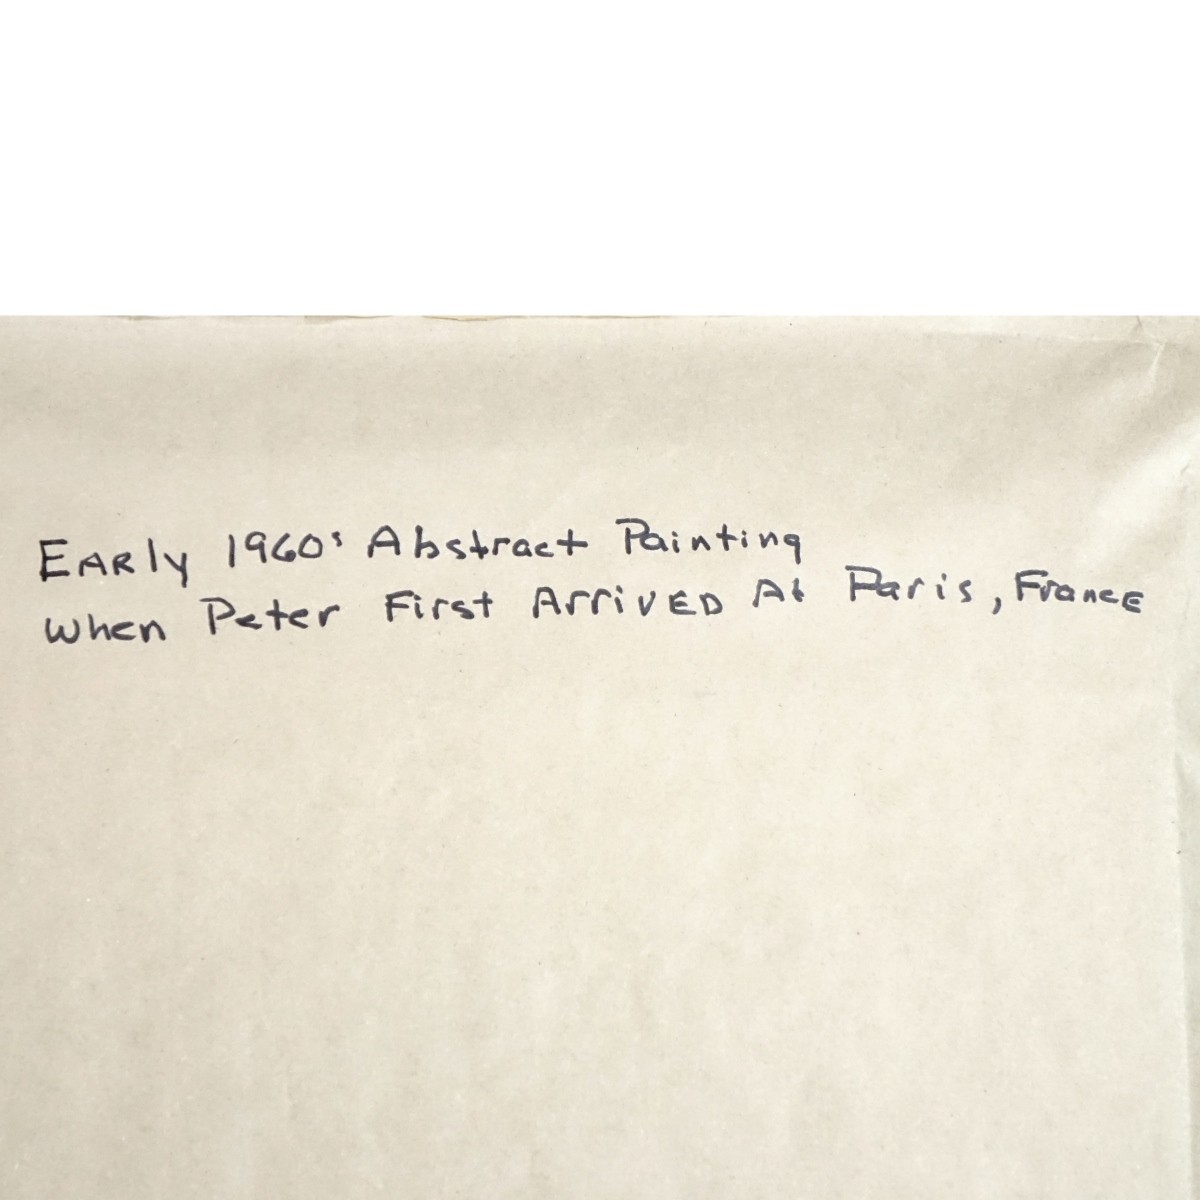 EARly 1960s Abstract Painting
when Peter First ArrivED At Paris, FrancE